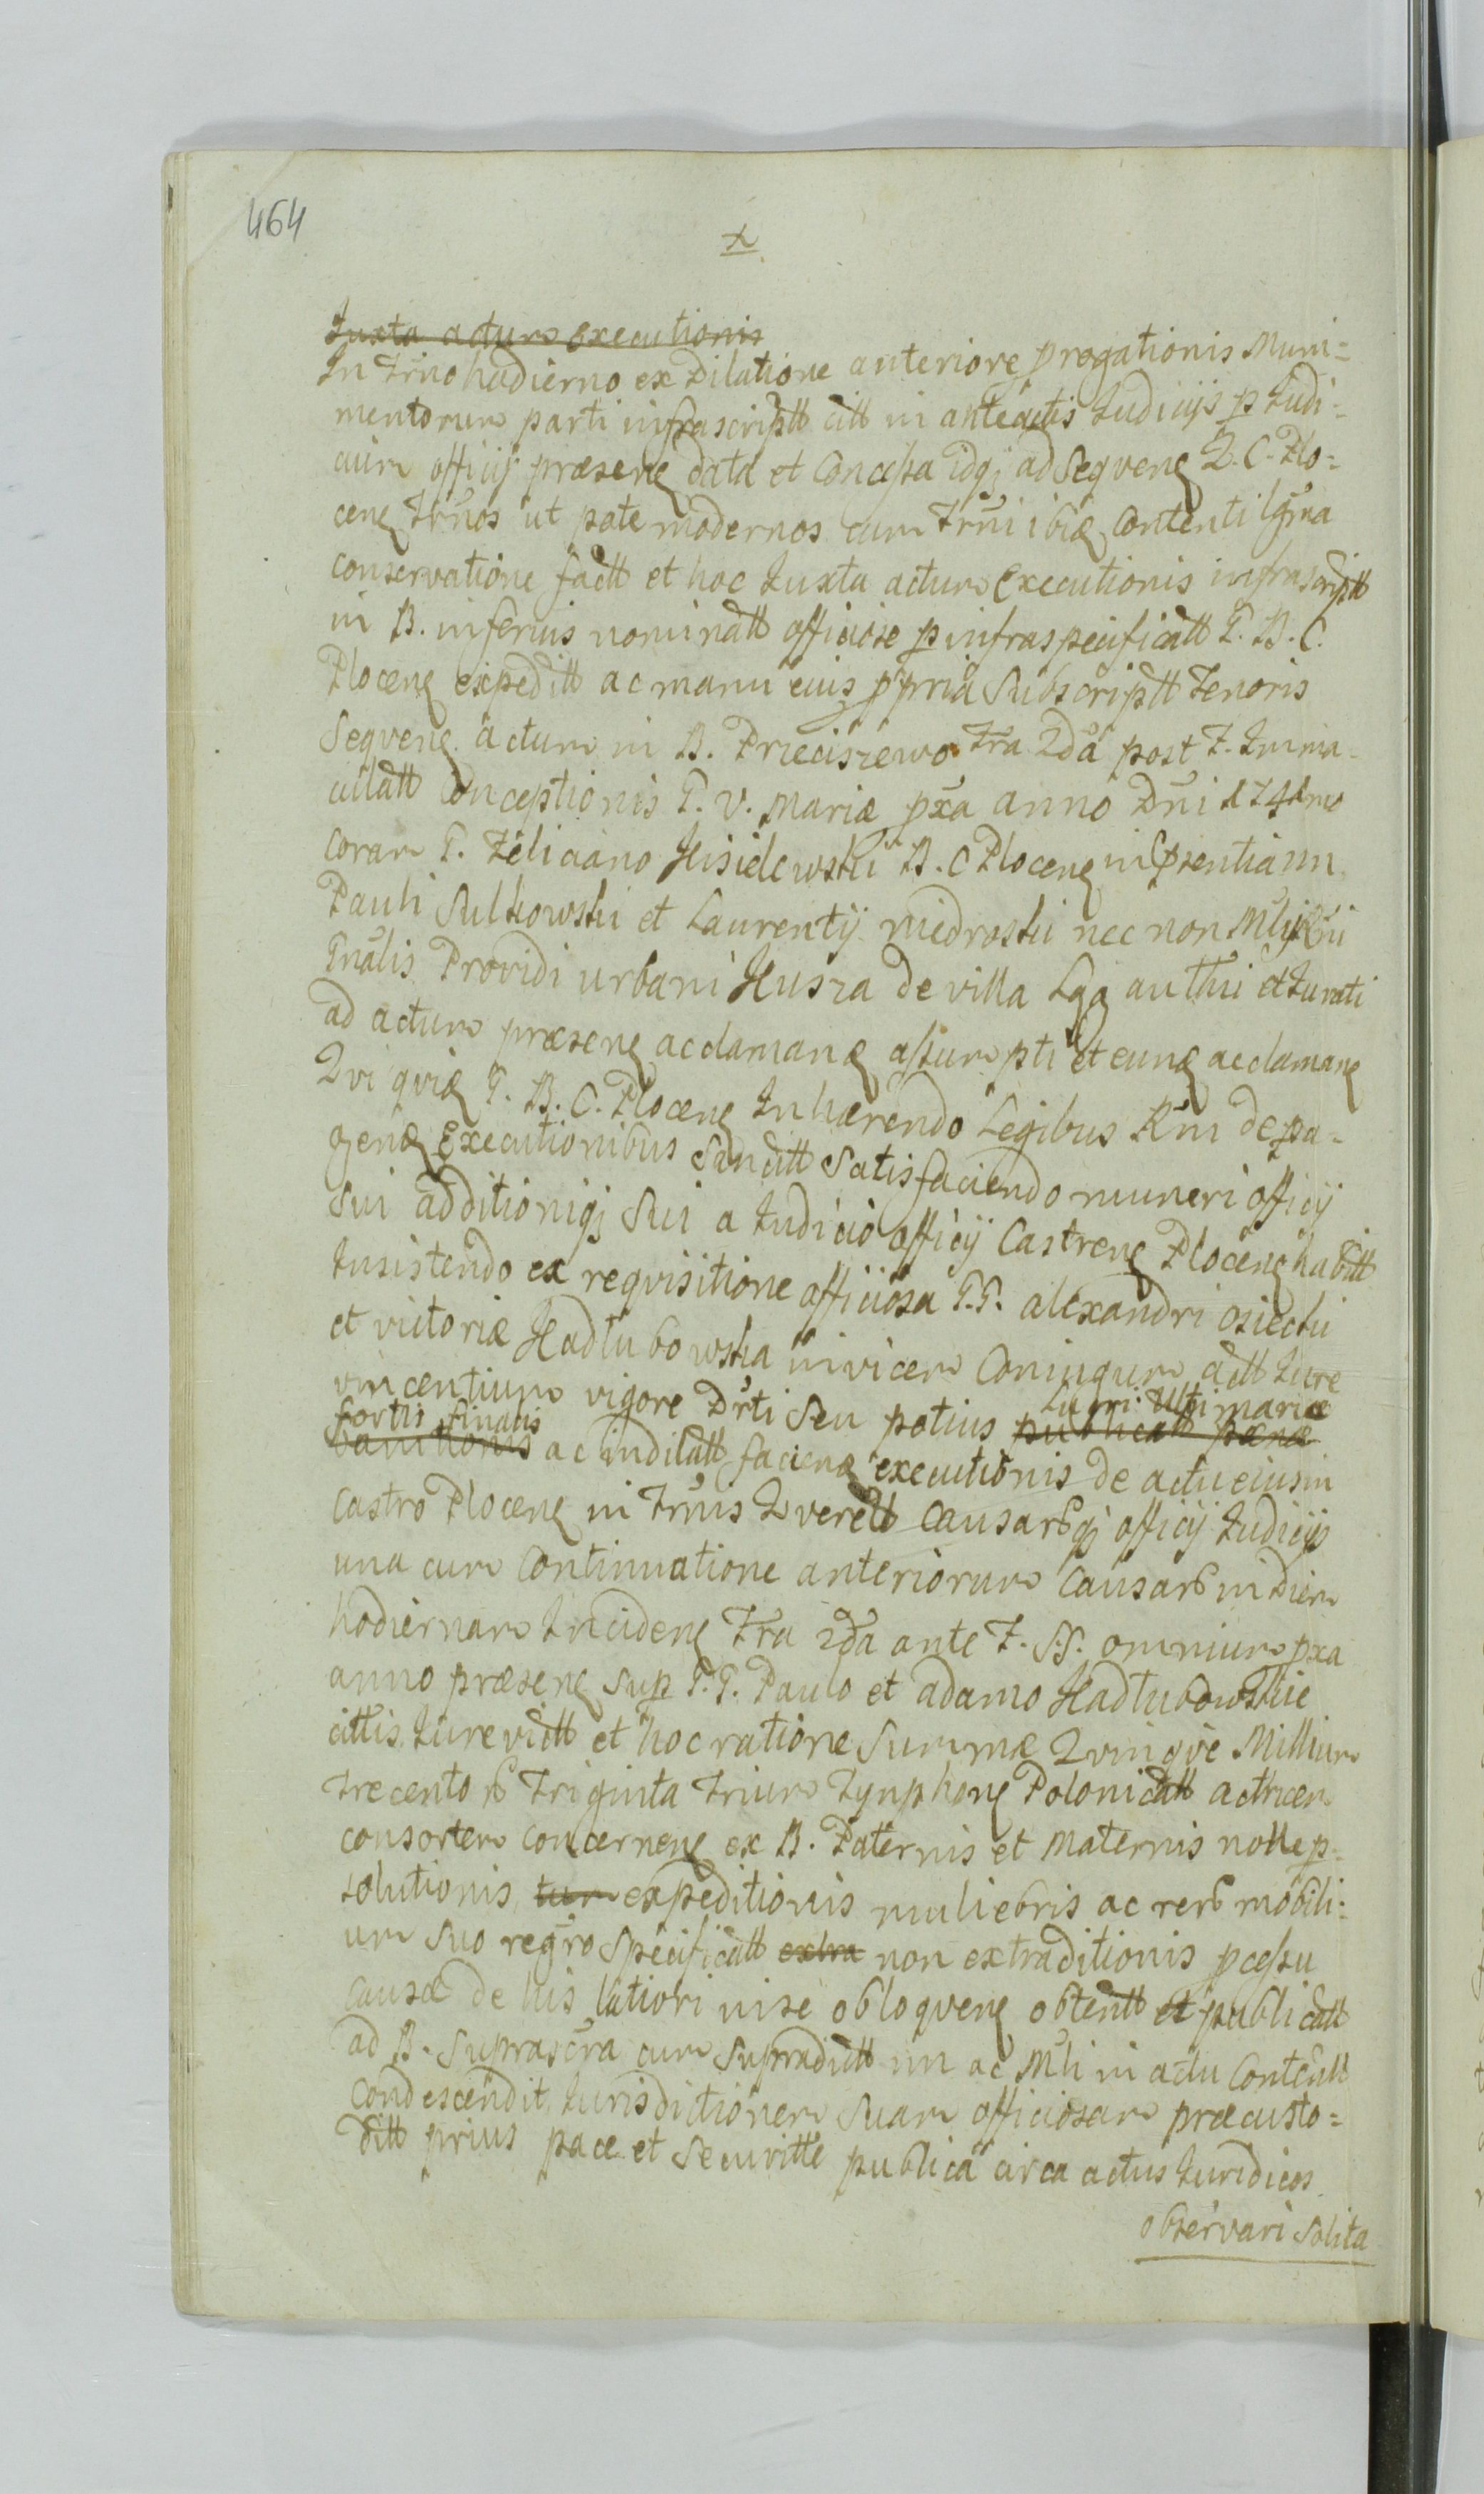 464
x
Juxta actum executionis
In Trno hodierno ex Dilatione anteriore prrogationis Muni=
mentorum parti infrascriptt citt in anteactis Judicijs p Judi-
cium officij præseng data et Concessa idqj ad Seqveng Q. C. Plo=
ceng Trnos ut pate modernos cum Trni ibid Contenti lgma
conservatione factt et hoc Juxta actum Executionis infrascriptt
in B. inferius nominatt officiose p infraspecificatt G. B. C.
Ploceng expeditt ac manu eius ppria Subscriptt Tenoris
Seqveng. actum in B. Przeciszewo Fra 2da post F. Imma-
culatt Conceptionis G. V. Mariæ pxa anno Dni 1741mo
coram G. Feliciano Kisielewski B. C Ploceng in Psentia nn.
Pauli Sulkowski et Laurentij niedroski nec non Mlij Rni
Gnalis Providi urbani Husza de villa Lgg authni et Jurati
ad actum præseng acclamand assumpti et eund acclamang
Qvi qvid G. B. C. Ploceng Inhærendo Legibus Rni de pa-
gend Executionibus Sancitt Satisfaciendo muneri officij
Sui additioniqj Sui a Judicio officij Castreng Ploceng habitt
Insistendo ex reqvisitione officiosa G.G. alexandri osiecki
et victoriæ Kadlubowska invicem Coniugum actt Jure
vincentium vigore Drti Seu potius publicatt pænæ
Lucri Ultimariæ
fortis finalis
banitionis ac indilatt faciend executionis de actu eius in
Castro Ploceng in Trnis Qverell Causarbqj officij Judicijs
una cum Continuatione anteriorum Causarb in Diem
hodiernam Incideng Fra 2da ante F. S.S. omnium pxa
anno præseng Sup G.G. Paulo et adamo Kadlubowskie
cittis Jure victt et hoc ratione Summæ Qvinqve Millium
Trecentorb Triginta Trium Tynphong Polonicatt actricem
consortem concerneng ex B. Paternis et Maternis nolle p-
solutionis, tum expeditionis muliebris ac rerb mobili:
um Suo regro Specificatt extra non extraditionis pcessu
causæ de his latiori nise obloqveng obtentt et publicatt
ad B. Suprascra cum Supradictt nn ac Mli in actu Contentt
Condescendit, Jurisdictionem Suam officiosam præcusto=
ditt prius pace et Securitte publica circa actus Juridicos
observari Solita